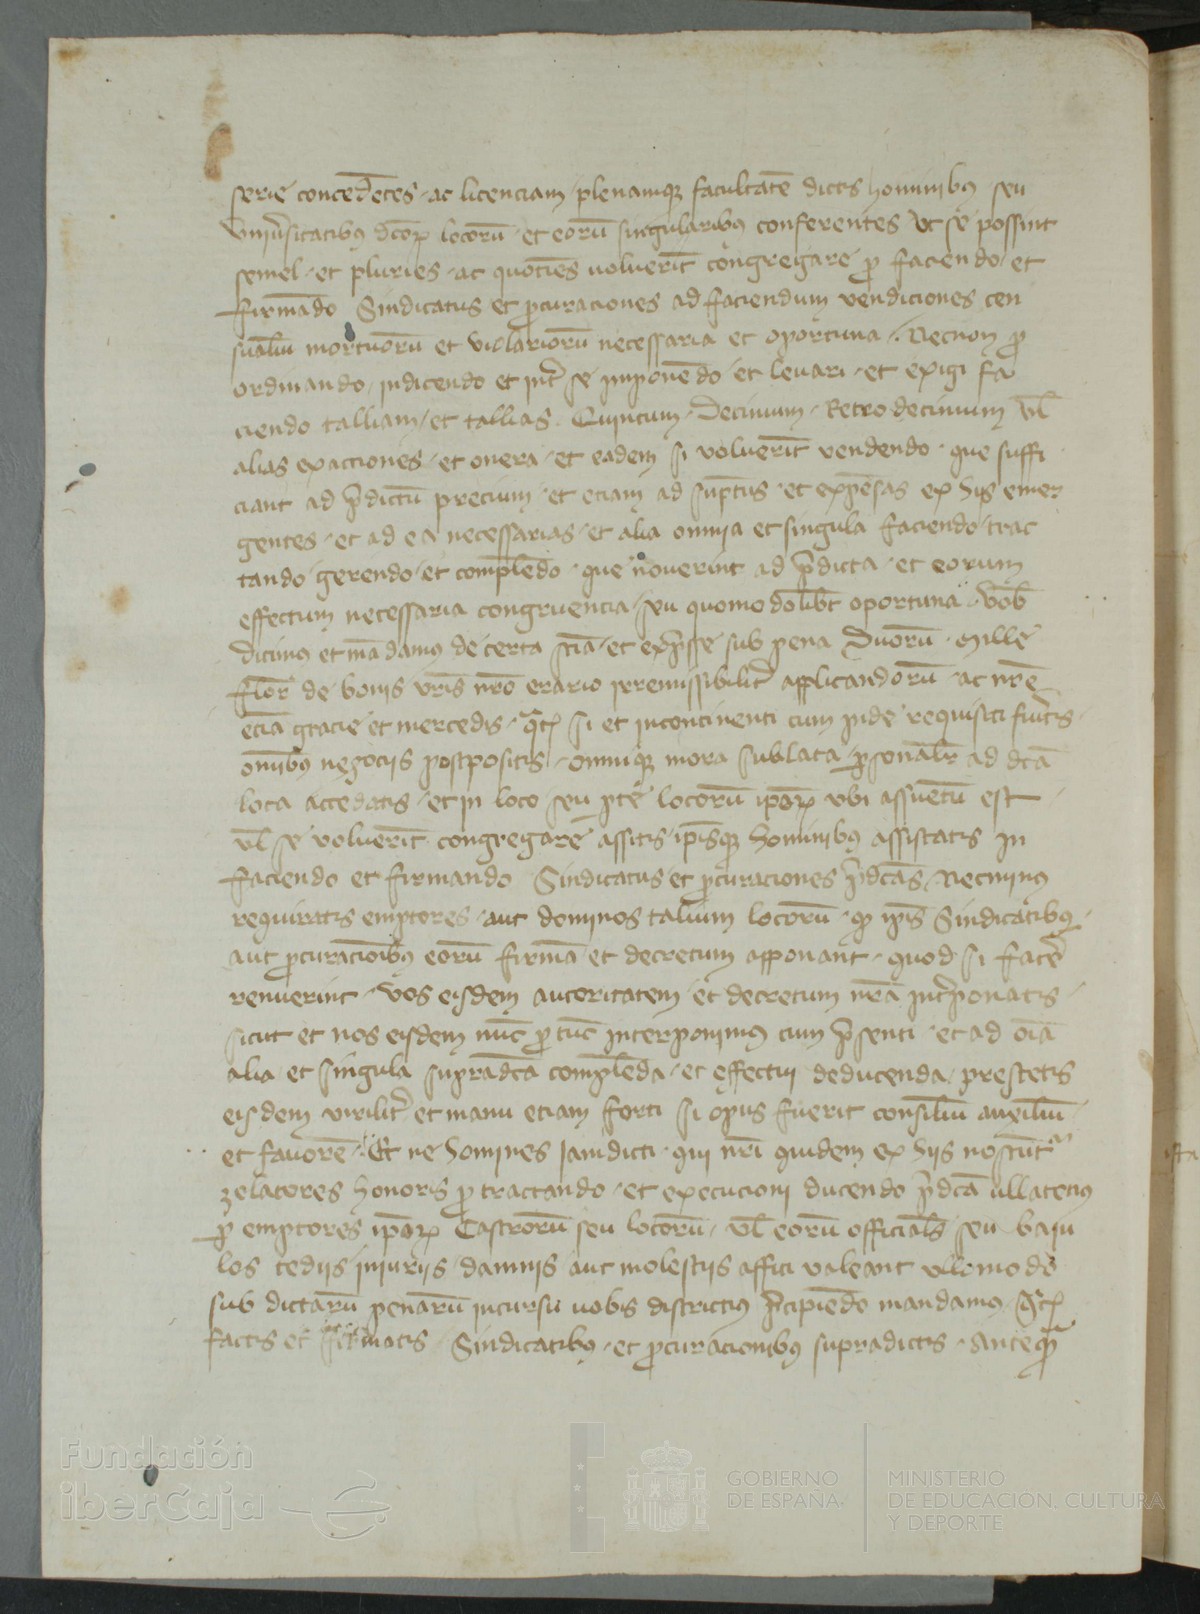 serie concedẽtes · ac licenciam plenamqʒ facultatẽ dictis hominibꝰ seu
vniũsitatibꝰ dc̃oꝝ locorũ · et eorũ singularibꝰ conferentes vt se possint
semel · et pluries · ac quociẽs voluerĩt congregare ꝓ faciendo et
firmãdo Sindicatus et ꝓcuraciones ad faciendum vendiciones cen
sualiũ mortuorũ et violariorũ necessaria et oportuna · Necnon ꝓ
ordinando indicendo et int̃ se imponẽdo et leuari · et exigi fa
ciendo talliam et tallias Quintum · Decimum · Retrodecimum ṽl
alias exacciones · et onera · et eadem si voluerĩt vendendo · que suffi
ciant ad p̃dictũ precium · et eciam ad sũptus · et expẽsas ex his emer
gentes · et ad ea necessarias · et alia omnia et singula faciendo trac
tando gerendo et complẽdo · que nouerint ad p̃dicta · et eorum
effectum necessaria congruencia seu quomodolibt̃ oportuna · Vob̃
dicimus et mãdamus de certa sciã · et exp̃sse sub pena Duorũ · Mille
flor̃ de bonis vr̃is nr̃o erario irremissibilit̃ applicandorũ · ac nr̃e
eciã gracie et mercedis · qt̃ si et incontinenti cum inde requisiti fũitis ·
omĩbus negociis postpositis · omnique mora sublata ꝑsonalr̃ ad dc̃a
loca accedatis · et in loco seu ꝑte locorũ ip̃oꝝ vbi assuetũ est
ṽl se voluerĩt congregare assitis ip̃isqʒ hominibꝰ assistatis in
faciendo et firmando Sindicatus et ꝓcuraciones p̃dc̃as Necminus
requiratis emptores · aut dominos talium locorũ · qꝫ ip̃is Sindicatibꝰ
aut ꝓcuracionibꝰ eorũ firmã et decretum apponant · quod si facẽ
renuerint · vos eisdem auctoritatem et decretum nr̃a int̃ponatis
sicut et nos eisdem nũc ꝓ tũc interponimus cum p̃senti · et ad oĩa
alia et singula supradc̃a complẽda · et effectui deducenda prestetis
eisdem virilit̃ et manu eciam forti si opus fuerit consiliũ auxiliũ
et fauorẽ · Et ne homines iamdicti · qui nr̃i quidem ex hijs noscũtʳ
zelatores honoris ꝓ tractando · et execucioni ducendo p̃dc̃a vllatenus
ꝑ emptores ip̃oꝝ Castrorũ seu locorũ · ṽl eorũ officiales seu baiu
los tediis iniuriis dampnis aut molestiis affici valeant vllomodo
sub dictarũ penarũ incursu vobis districtius p̃cipiẽdo mandamus · qt̃
factis et firmatis · Sindicatibꝰ · et ꝓcuracionibꝰ supradictis · anteqꝫ̃